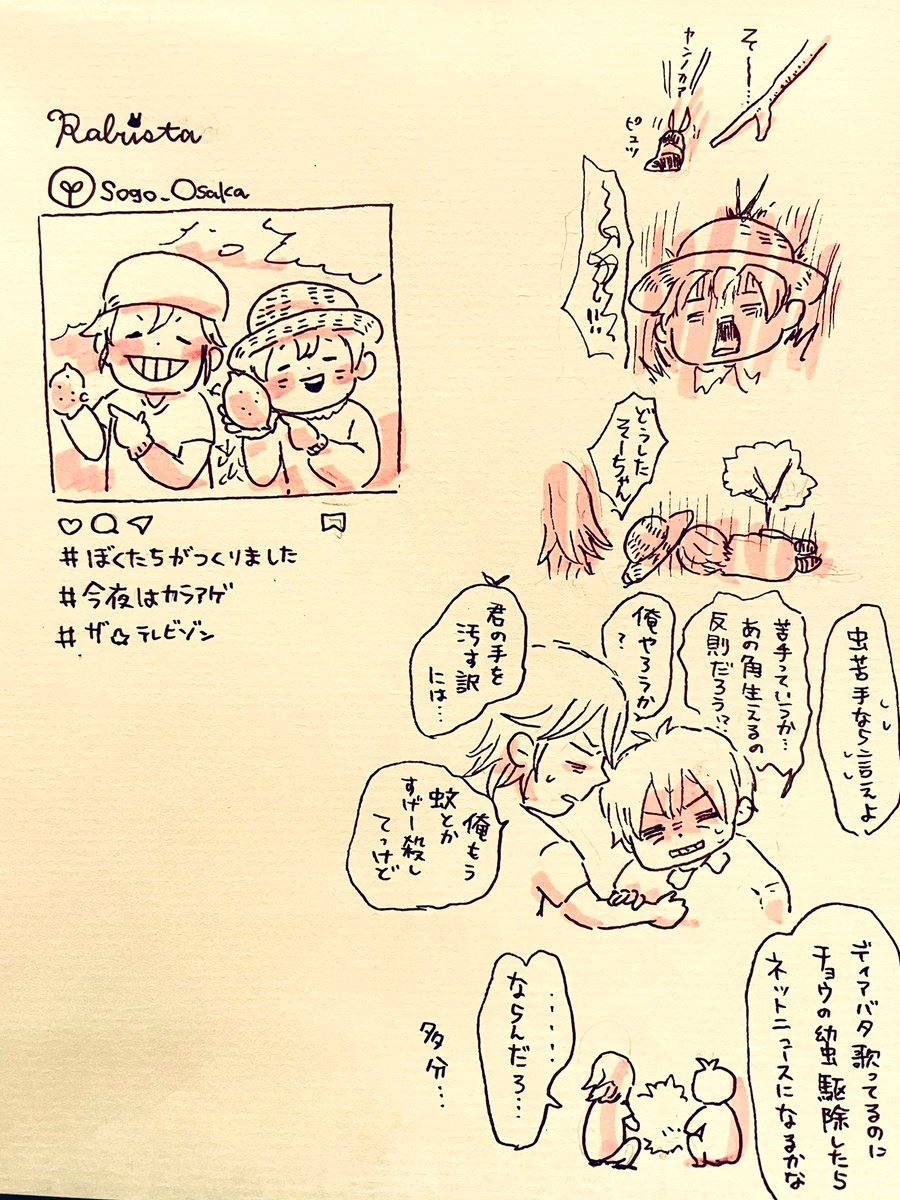 そー…
ヤンノカァ
ピュッ
どうした
そーちゃん
虫苦手なら言えよ
苦手っていうか…
あの角生えるの
反則だろう!?
俺やろうか
?
君の手を
汚す訳
には…
俺もう
蚊とか
すげー殺し
てっけど
ディアバタ歌ってるのに
チョウの幼虫駆除したら
ネットニュースになるかな
……
ならんだろ…
多分…
Rabista
Sogo_Osaka
#ぼくたちがつくりました
#今夜はカラアゲ
#ザ☆テレビゾン